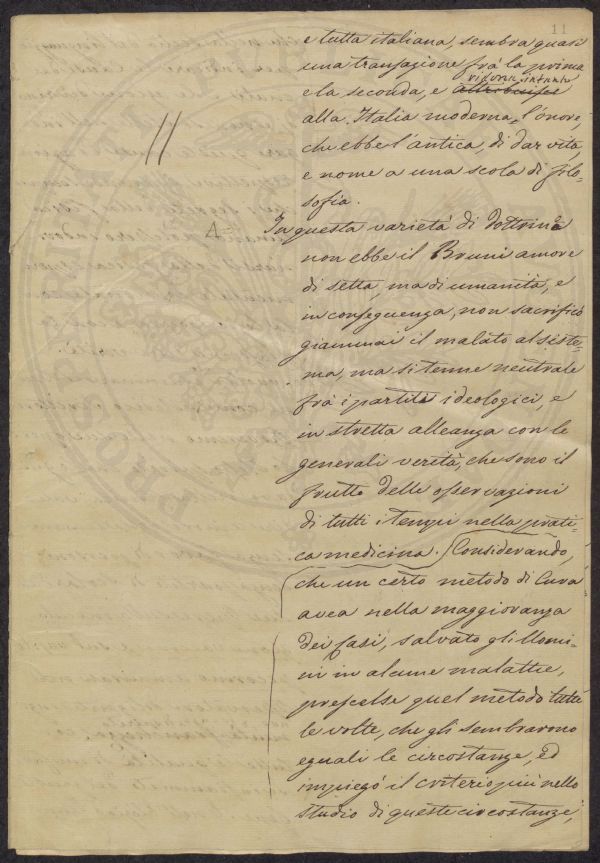 11
e tutta italiana, sembra quasi
una transazione frà la prima
riforma intanto
e la seconda, e attribuisce
alla Italia moderna l'onore,
che ebbe l'antica, di dar vita,
e nome a una scola di filo-
sofia.
11
A=
In questa varietà di dottrina
non ebbe il Bruni amore
di setta, ma di umanità, e
in conseguenza, non sacrificò
giammai il malato al siste-
ma, ma si tenne neutrale
frà i partiti ideologici, e
in stretta alleanza con le
generali verità, che sono il
frutto delle osservazioni
di tutti i tempi nella prati-
ca medicina. Considerando,
che un certo metodo di Cura
avea nella maggiovanza
dei casi, salvato gli Uomi-
ni in alcune malattie,
prescelse quel metodo tutte
le volte, che gli sembravono
eguali le circostanze, ed
impiegò il criterio più nello
studio di queste circostanze,